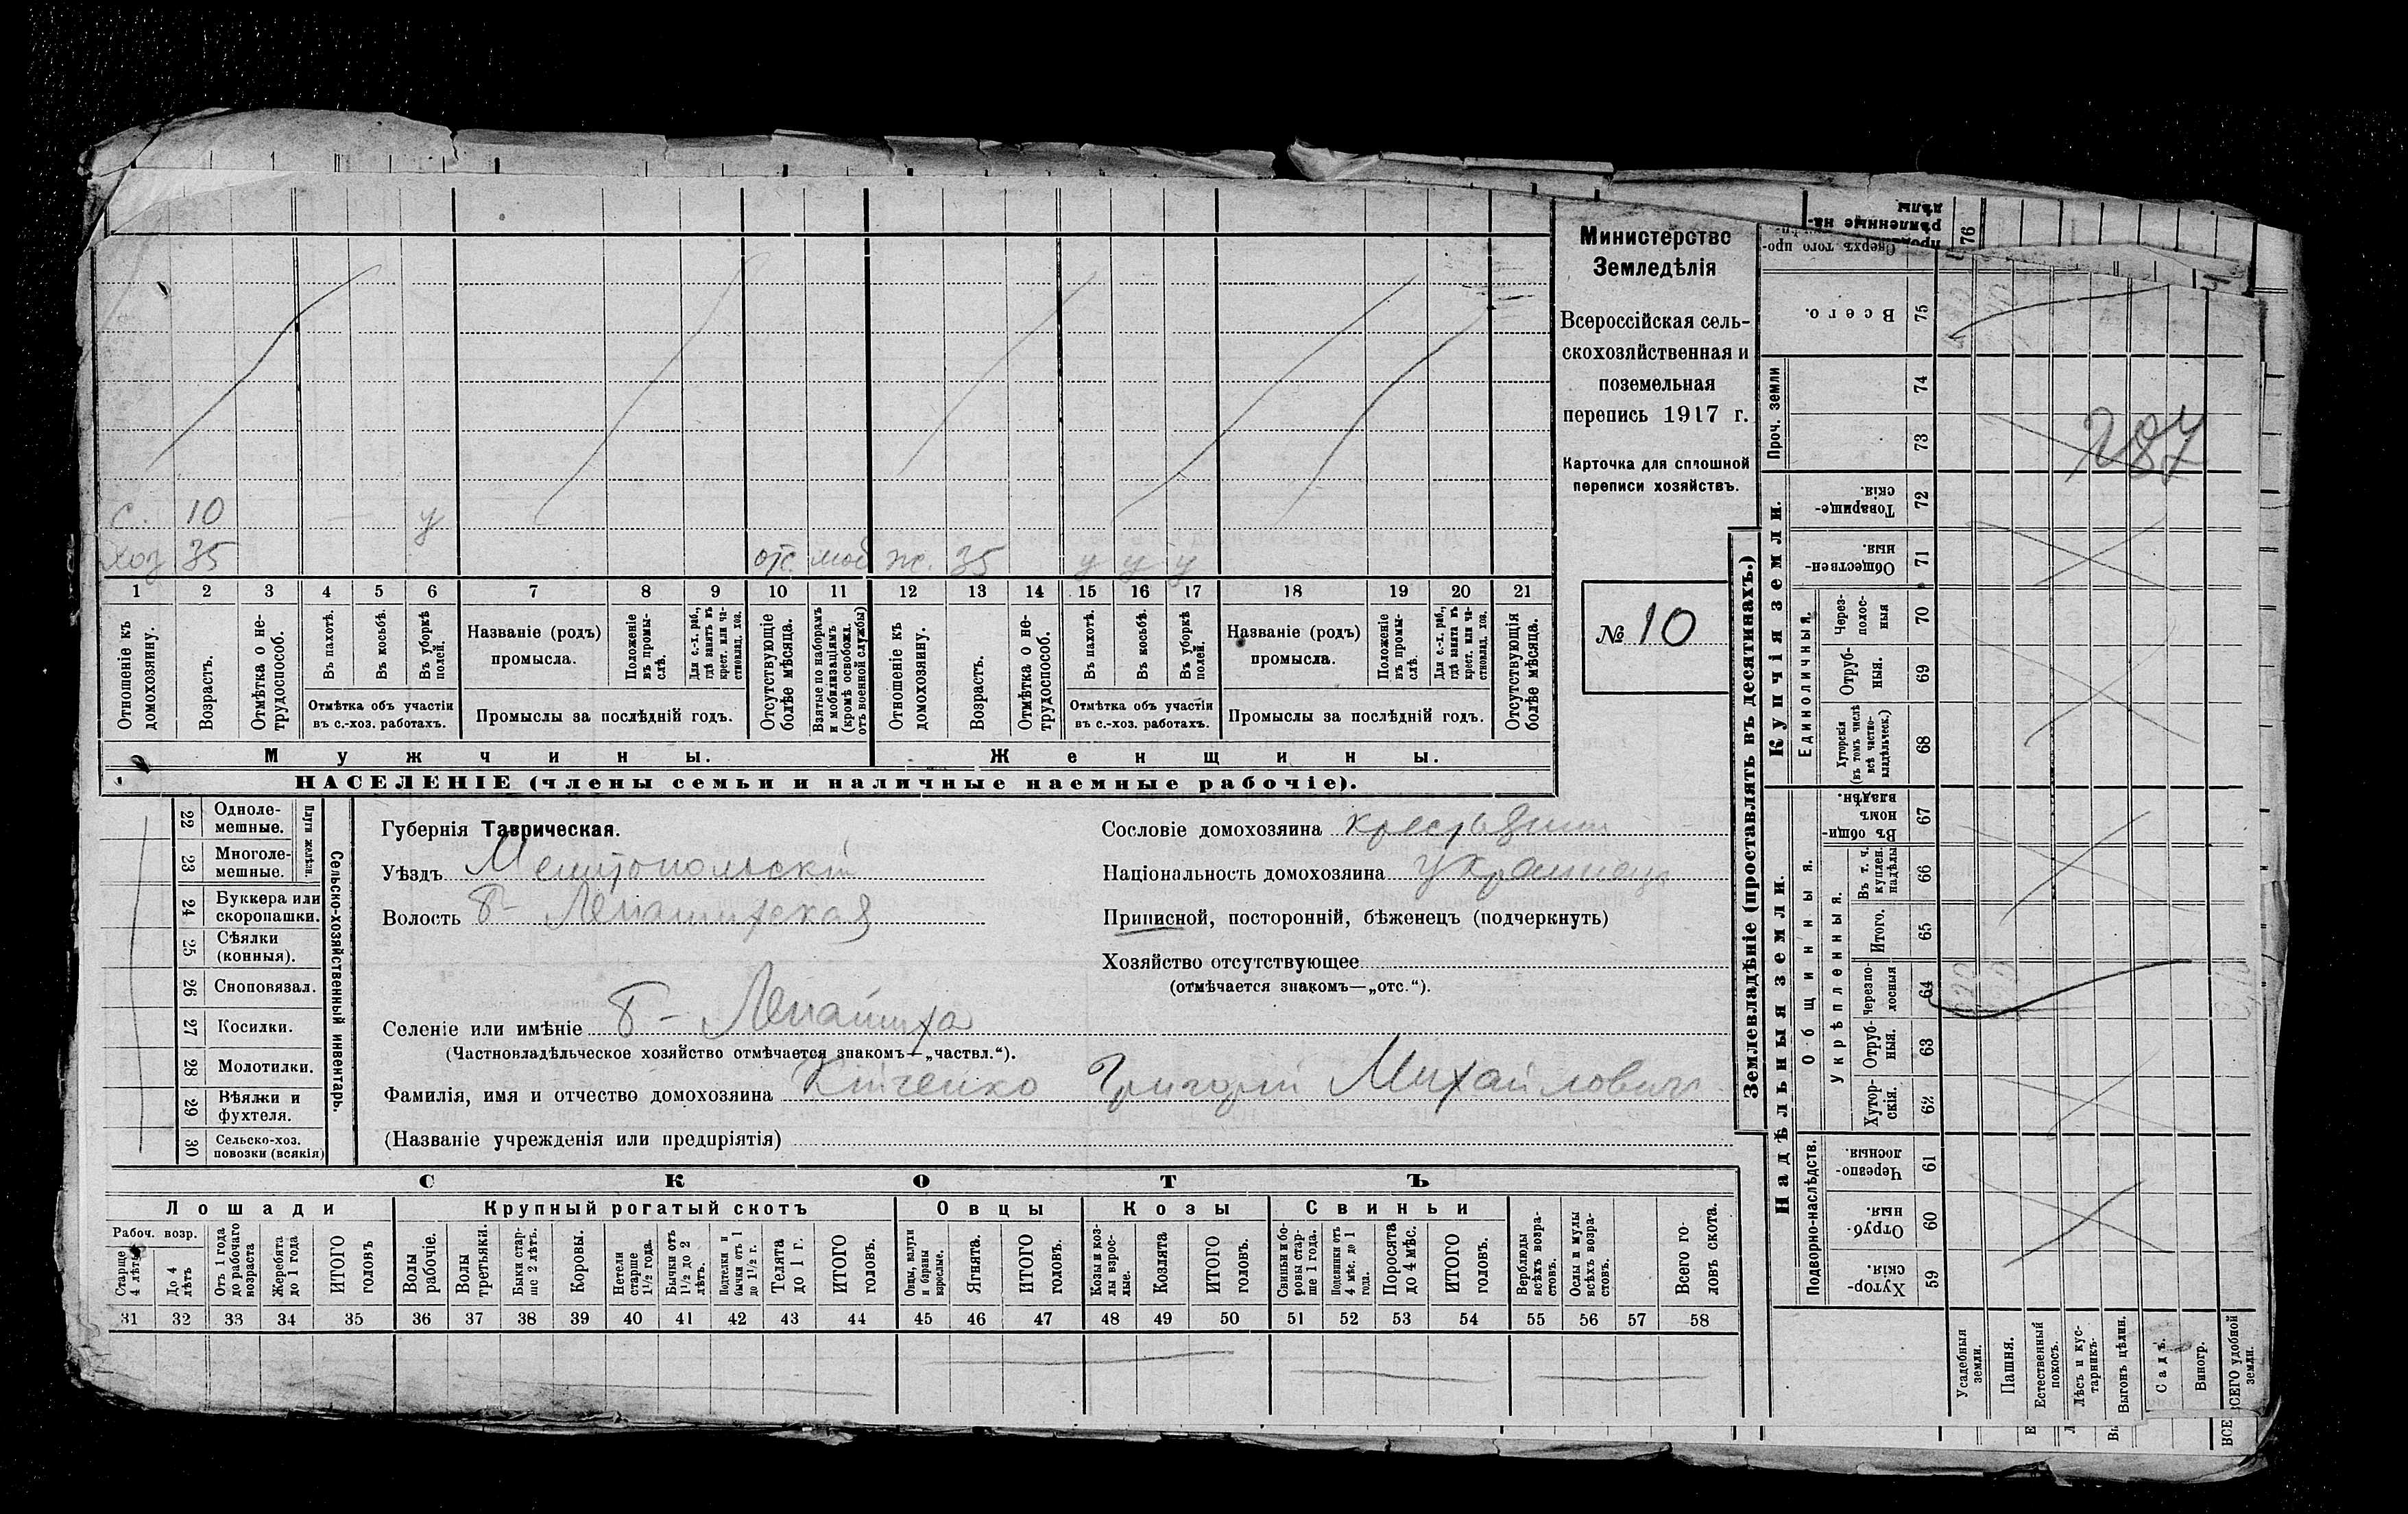 с. 10 у
хоз 35 отс. моб ж. 35 у у у
1 2 3 4 5 6 7 8 9 10 11 12 13 14 15 16 17 18 19 20 21
Отношеніе къ домохозяину.
Возрастъ.
Отмѣтка о не-трудоспособ.
Въ пахотѣ.
Въ косьбѣ.
Въ уборкѣ полей.
Отмѣтка объ участіи
въ с.-хоз. работахъ.
Названіе (родъ)
промысла.
Положеніе въ промы-слѣ.
Для с.-х. раб., гдѣ занятъ въ крест. или ча-стновлад. хоз.
Промыслы за послѣдній годъ.
Отсутствующіе болѣе мѣсяца.
Взятые по наборамъ и мобилизаціямъ (кромѣ освобожд. отъ военной службы)
Отношеніе къ домохозяину.
Возрастъ.
Отмѣтка о не-трудоспособ.
Въ пахотѣ.
Въ косьбѣ.
Въ уборкѣ полей.
Отмѣтка объ участіи
въ с.-хоз. работахъ.
Названіе (родъ)
промысла.
Положеніе въ промы-слѣ.
Для с.-х. раб., гдѣ занята въ крест. или ча-стновлад. хоз.
Промыслы за послѣдній годъ.
Отсутствующія болѣе мѣсяца.
Мужчины. Женщины.
НАСЕЛЕНІЕ (члены семьи и наличные наемные рабочіе).
Министерство
Земледѣлія
Всероссійская сель-
скохозяйственная и
поземельная
перепись 1917 г.
Карточка для сплошной
переписи хозяйствъ.
№ 10
22 Одноле-мешные.
23 Многоле-мешные.
Плуги желѣзн.
24 Буккера или скоропашки.
25 Сѣялки (конныя).
26 Сноповязал.
27 Косилки.
28 Молотилки.
29 Вѣялки и фухтеля.
30 Сельско-хоз. повозки (всякія)
Сельско-хозяйственный инвентарь.
Губернія Таврическая.
Уѣздъ Мелитопольскій
Волость Б- Лепатихская
Селеніе или имѣніе Б- Лепатиха
(Частновладѣльческое хозяйство отмѣчается знакомъ—„частвл.“).
Фамилія, имя и отчество домохозяина Григорій Михайловичъ
(Названіе учрежденія или предпріятія)
Сословіе домохозяина крестьянин
Національность домохозяина украинецъ
Приписной, посторонній, бѣженецъ (подчеркнуть)
Хозяйство отсутствующее
(отмѣчается знакомъ—„отс.“).
СКОТЪ
Лошади Крупный рогатый скотъ Овцы Козы Свиньи
Рабоч. возр.
Старше 4 лѣтъ
До 4 лѣтъ
Отъ 1 года до рабочаго возраста
Жеребята до 1 года
ИТОГО головъ
Волы рабочіе.
Волы третьяки.
Быки стар-ше 2 лѣтъ.
Коровы.
Нетели старше 1½ года.
Бычки отъ 1½ до 2 лѣтъ.
Подтелки и бычки отъ 1 до 1½ г.
Телята до 1 г.
ИТОГО головъ.
Овцы, валухи и бараны взрослые.
Ягнята.
ИТОГО головъ.
Козы и коз-лы взрос-лые.
Козлята
ИТОГО головъ.
Свиньи и бо-ровы стар-ше 1 года.
Подсвинки отъ 4 мѣс. до 1 года.
Поросята до 4 мѣс.
ИТОГО головъ.
Верблюды всѣхъ возра-стовъ.
Ослы и мулы всѣхъ возра-стовъ.
Всего го-ловъ скота.
31 32 33 34 35 36 37 38 39 40 41 42 43 44 45 46 47 48 49 50 51 52 53 54 55 56 57 58
Землевладѣніе (проставлять въ десятинахъ.)
Надѣльныя земли.
Купчія земли.
Проч. земли
Подворно-наслѣдств.
Общинныя.
Укрѣпленныя.
Единоличный.
Хутор-скія 59
Отруб-ныя. 60
Черезпо-лосныя. 61
Хутор-скія. 62
Отруб-ныя. 63
Черезпо-лосныя 64
Итого. 65
Въ т. ч. куплен. надѣлы 66
Въ общи-номъ владѣн. 67
Хуторскія (въ томъ числѣ всѣ частно-владѣльческ.) 68
Отруб-ныя. 69
Через-полос-ныя 70
Обществен-ныя. 71
Товарище-скія. 72
73
74
Всего. 75
Сверхъ того про-
76
287
Усадебныя земли.
Пашня.
Естественный покосъ.
Лѣсъ и кус-тарникъ.
Выгонъ цѣлин.
Садъ.
Виногр.
ВСЕГО удобной земли.